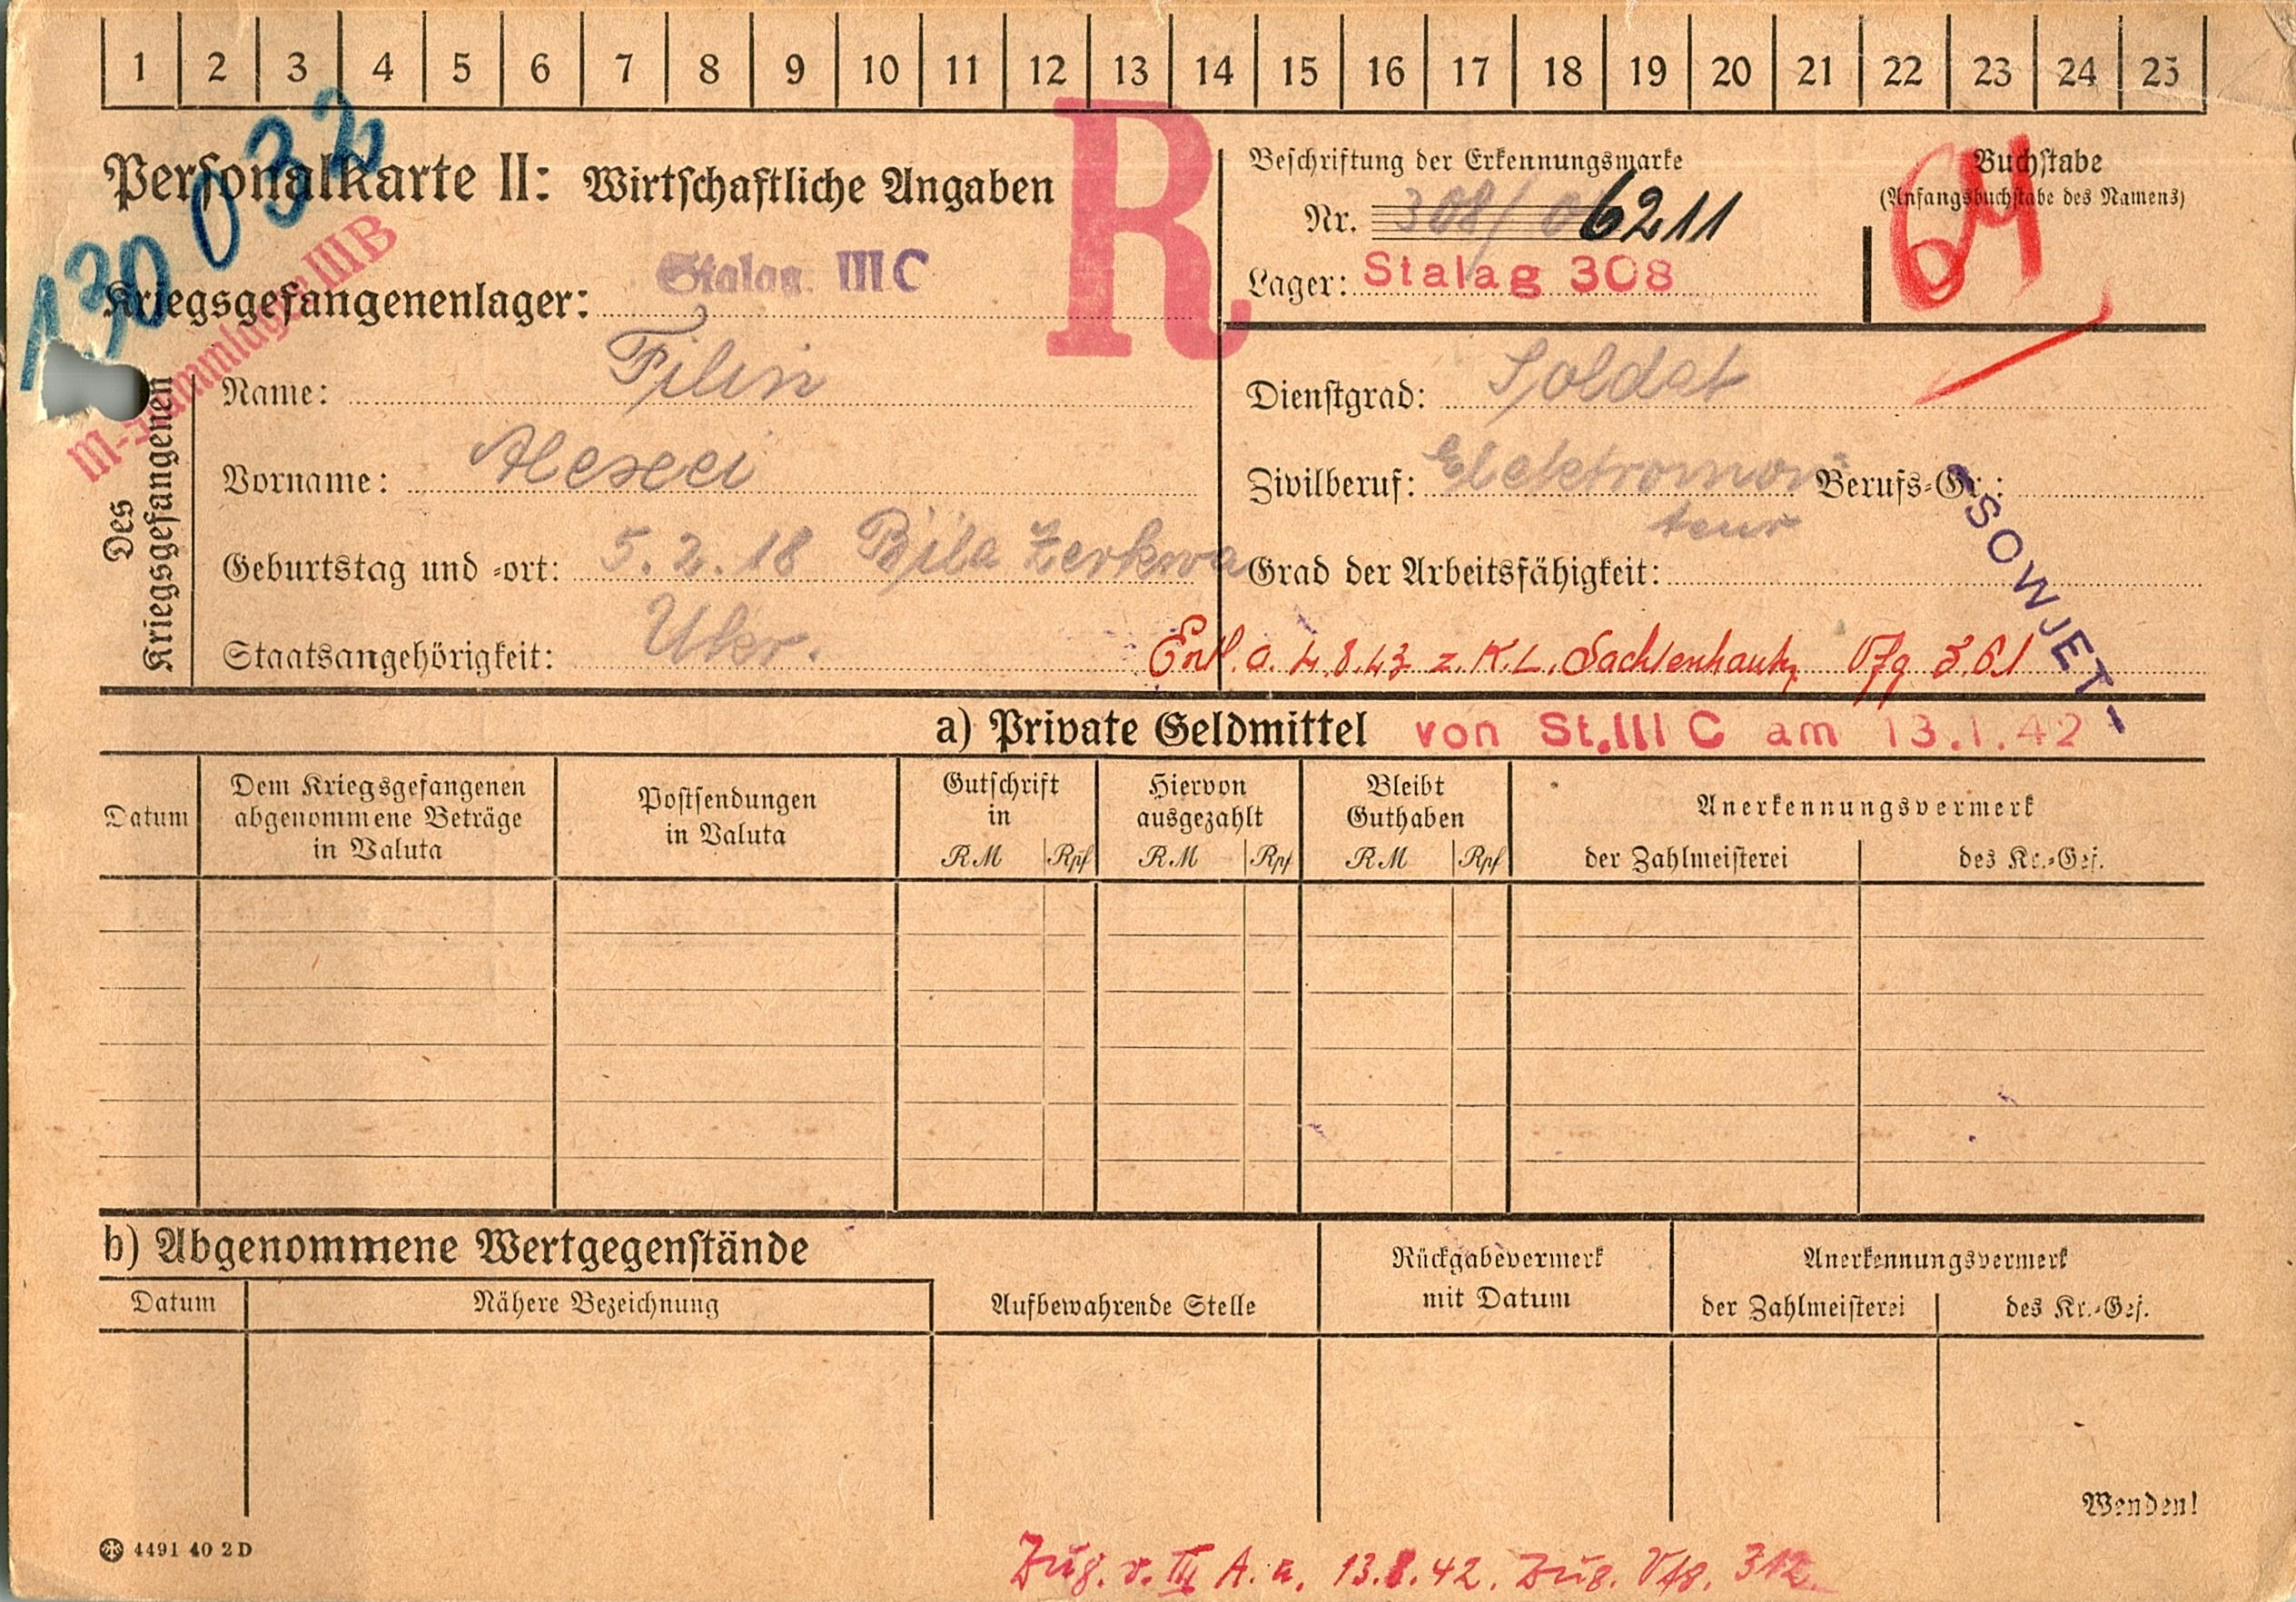 1 2 3 4 5 6 7 8 9 10 11 12 13 14 15 16 17 18 19 20 21 22 23 24 25
130 032
Personalkarte II: Wirtschaftliche Angaben
R
Beschriftung der Erkennungsmarke
Nr. 308/ 6211
Lager: Stalag 308
Buchstabe
(Anfangsbuchstabe des Namens)
Kriegsgefangenenlager: Stalag III C
M-Stammlager III B
Des Kriegsgefangenen
Name: Filin
Vorname: Alexei
Geburtstag und -ort: 5.2.18 Bila Zerkwa
Staatsangehörigkeit: Ukr.
Dienstgrad: Soldat
Zivilberuf: Elektromon-
teur
Berufs-Gr.:
Grad der Arbeitsfähigkeit:
SOWJET
Entl. a. 4.8.43 z. K.L. Sachsenhaus. Vfg 361
a) Private Geldmittel
von St. III C am 13.1.42
Datum
Dem Kriegsgefangenen
abgenommene Beträge
in Valuta
Postsendungen
in Valuta
Gutschrift
in
RM Rpf
Hiervon
ausgezahlt
RM Rpf
Bleibt
Guthaben
RM Rpf
Anerkennungsvermerk
der Zahlmeisterei
des Kr.-Gef.
b) Abgenommene Wertgegenstände
Datum
Nähere Bezeichnung
Aufbewahrende Stelle
Rückgabevermerk
mit Datum
Anerkennungsvermerk
der Zahlmeisterei
des Kr.-Gef.
Wenden!
4491 40 2 D
Zug. v. III A. a. 13.8.42. Zug. Vfg. 312